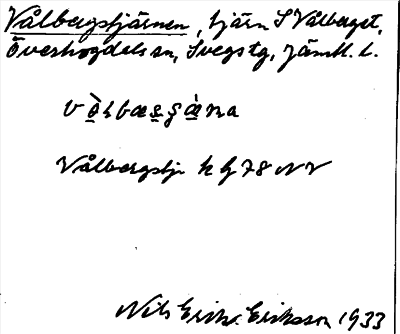 Vålbergstjärnen, tjärn S Vålberget,
Överhogdals sn, Svegs tg, Jämtl. l.
Vålbergstjn k bl 78 NV
Nils Erik Eriksson 1933